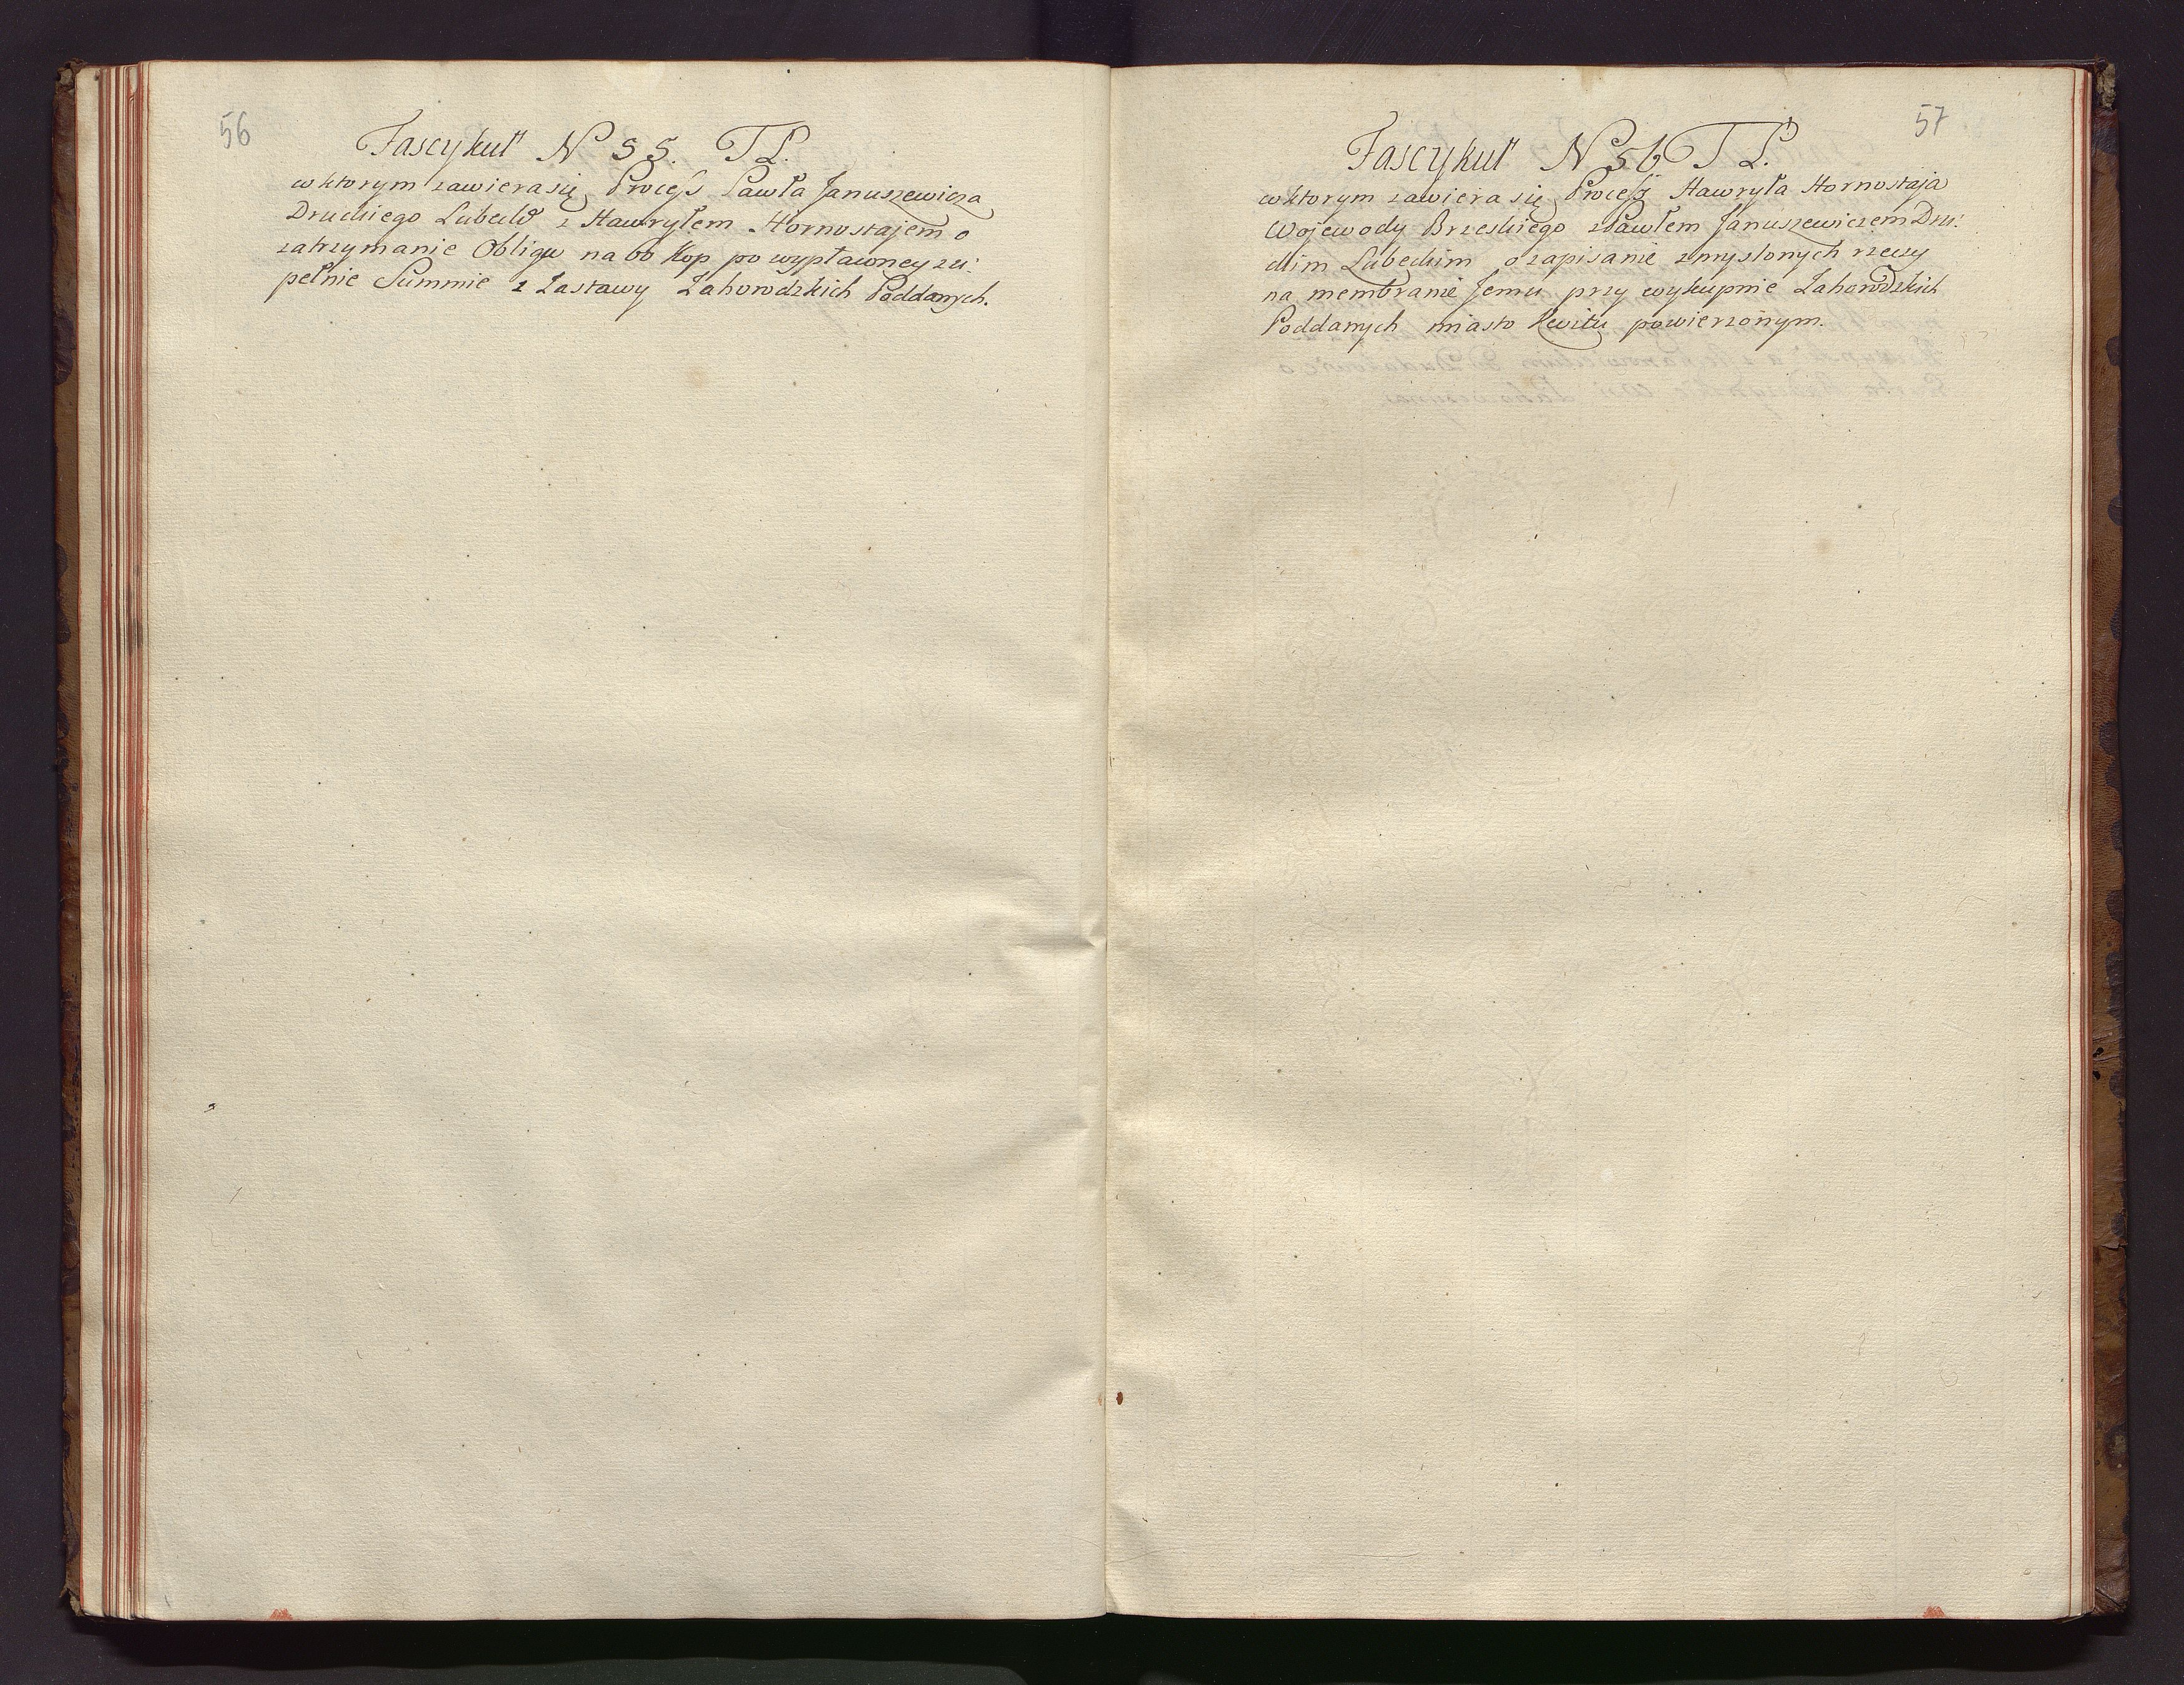 56
Fascykuł N 55. T L.
w ktorym zawiera się Process Pawła Januszewicza
Druckiego Lubeckº z Hawryłem Hornostajem o
zatrzymanie Obligu na 66 Kop po wypłaconey zu:
pełnie Summie z Zastawy Zahorodzkich Poddanych.
57
Fascykuł N 56 T L.
w ktorym zawiera się Process Hawryła Hornostaja
Wojewody Brzeskiego z Pawłem Januszewiczem Dru:
ckim Lubeckim o zapisanie zmyslonych rzeczy
na membranie Jemu przy wykupnie Zahorodzkich
Poddanych miasto Kwitu powierzonym.